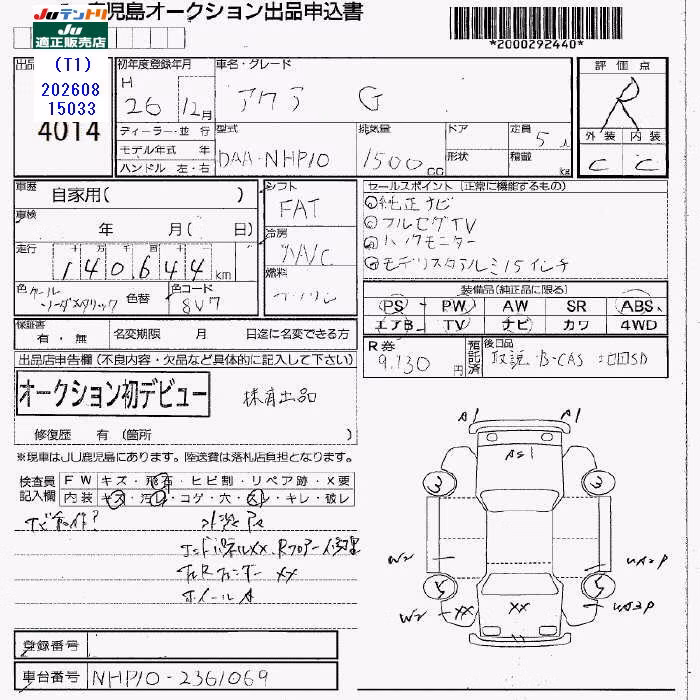 JUテントリ
適正販売店
鹿児島オークション出品申込書
*2000292440*
出品
(T1)
202608
15033
4014
初年度登録年月
H 26 12月
車名・グレード
アクア G
評価点
R
外装 内装
C C
ディーラー・並行
モデル年式 年
ハンドル 左・右
型式
DAA-NHP10
排気量
1500cc
ドア
形状
定員 5人
積載 kg
車歴 自家用( )
車検 年 月( 日)
走行 十 万 千 百 十
140,644 km
色 クールソーダメタリック
色替
色コード
8V7
シフト
FAT
冷房
燃料
ガソリン
セールスポイント(正常に機能するもの)
①純正ナビ
②フルセグTV
③バックモニター
④モデリスタアルミ15インチ
装備品(純正品に限る)
PS PW AW SR ABS
エアB TV ナビ カワ 4WD
保証書
有・無
名変期限 月 日迄に名変できる方
R券
9,130円
預託済
後日品
取説 B-CAS SD
出品店申告欄(不良内容・欠品など具体的に記入して下さい)
オークション初デビュー
修復歴 有(箇所 )
※現車はJU鹿児島にあります。陸送費は落札店負担となります。
検査員記入欄
FW キズ・飛石・ヒビ割・リペア跡・X要
内装 キズ・汚レ・コゲ・穴・スレ・キレ・破レ
エンドパネルXX、Rフロアー修理
左Rフェンダー XX
ホイールA
A1 A1
AS1
3 3
W2 UA2P
5 5
W2 XX XX UA3P
登録番号
車台番号 NHP10-2361069